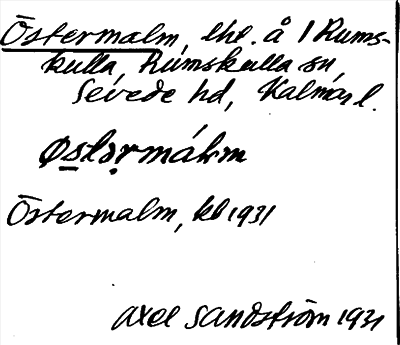 Östermalm, lht. å 1 Rums-
kulla, Rumskulla sn,
Sevede hd, Kalmar l.
Østərmálm
Östermalm, kb 1931
Axel Sandström 1931